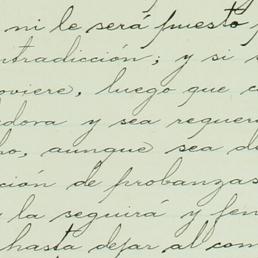 ni le será puesto
ntradicción; y si s
oviere, luego que c
dora y sea requer
ho, aunque sea d
ción de probanzas
la seguirá y fen
hasta dejar al com